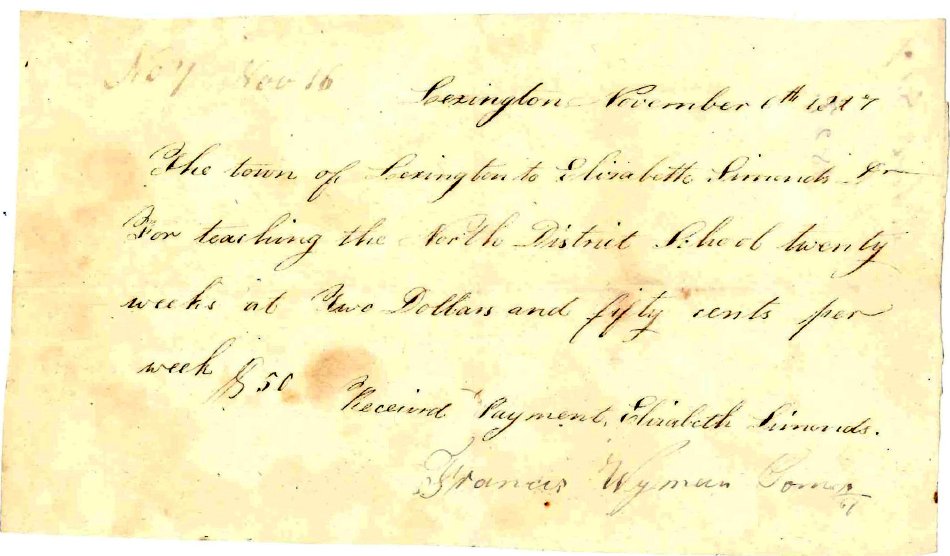 No 7 Nov 16
Lexington November 6th 1827
The town of Lexington to Elizabeth Simonds Dr
For teaching the North District School twenty
weeks at Two Dollars and fifty cents per
week $50
Received Payment, Elizabeth Simonds.
Francis Wyman Comtee